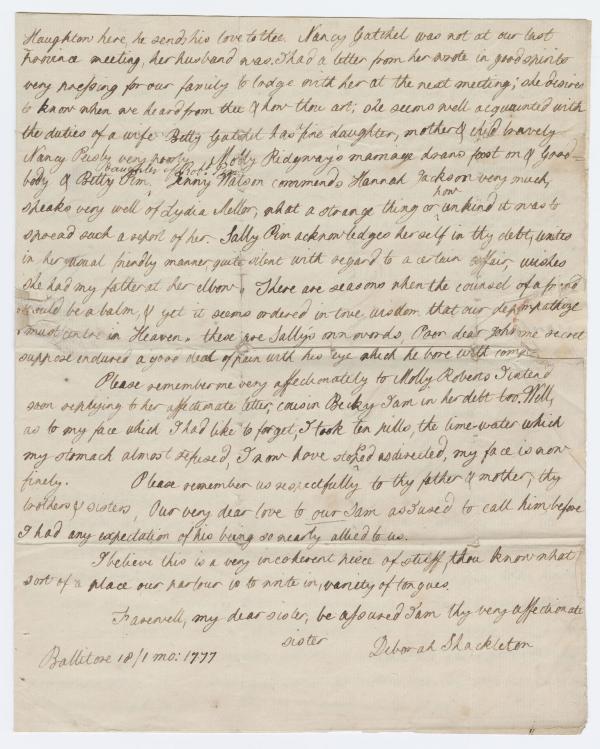 Haughton here, he sends his love to thee. Nancy Gatchel was not at our last
Province meeting, her husband was. I had a letter from her wrote in good spirits
very pressing for our family to lodge with her at the next meeting; she desires
to know when we heard from thee & how thou art; she seems well acquainted with
the duties of a wife Betty Gatchel has fine daughter, mother & child bravely
Nancy Pusby very poorly Molly Ridgway's marriage draws post on & Good-
daughter of Thos. Pim
body & Betty Pim, Jenny Watson commends Hannah Jackson very much,
how
speaks very well of Lydia Mellor, what a strange thing or unkind it was to
spread such a report of her. Sally Pim acknowledges herself in thy debt, unites
in her usual friendly manner, quite silent with regard to a certain affair, wishes
she had my father at her elbow. There are seasons when the counsel of a friend
would be a balm, & yet it seems ordered in love, wisdom that our sympathize
must centre in Heaven. these are Sally's own words, Poor dear John we secret
suppose endured a good deal of pain with his eye which he bore with comp
Please remember me very affectionately to Molly Roberts I intend
soon replying to her affectionate letter, cousin Becky I am in her debt too. Well,
as to my face which I had like to forget, I took ten pills, the lime-water which
my stomach almost refused, I now have stoped as directed, my face is now
finely. Please remember us respectfully to thy father & mother, thy
brothers & sisters, Our very dear love to our Sam as I used to call him before
I had any expectation of his being so nearly allied to us.
I believe this is a very incoherent piece of stuff thou know what
sort of a place our parlour is to write in, variety of tongues.
Farewell, my dear sister, be assured I am thy very affectionate
sister
Deborah Shackleton
Ballitore 18/1 mo: 1777